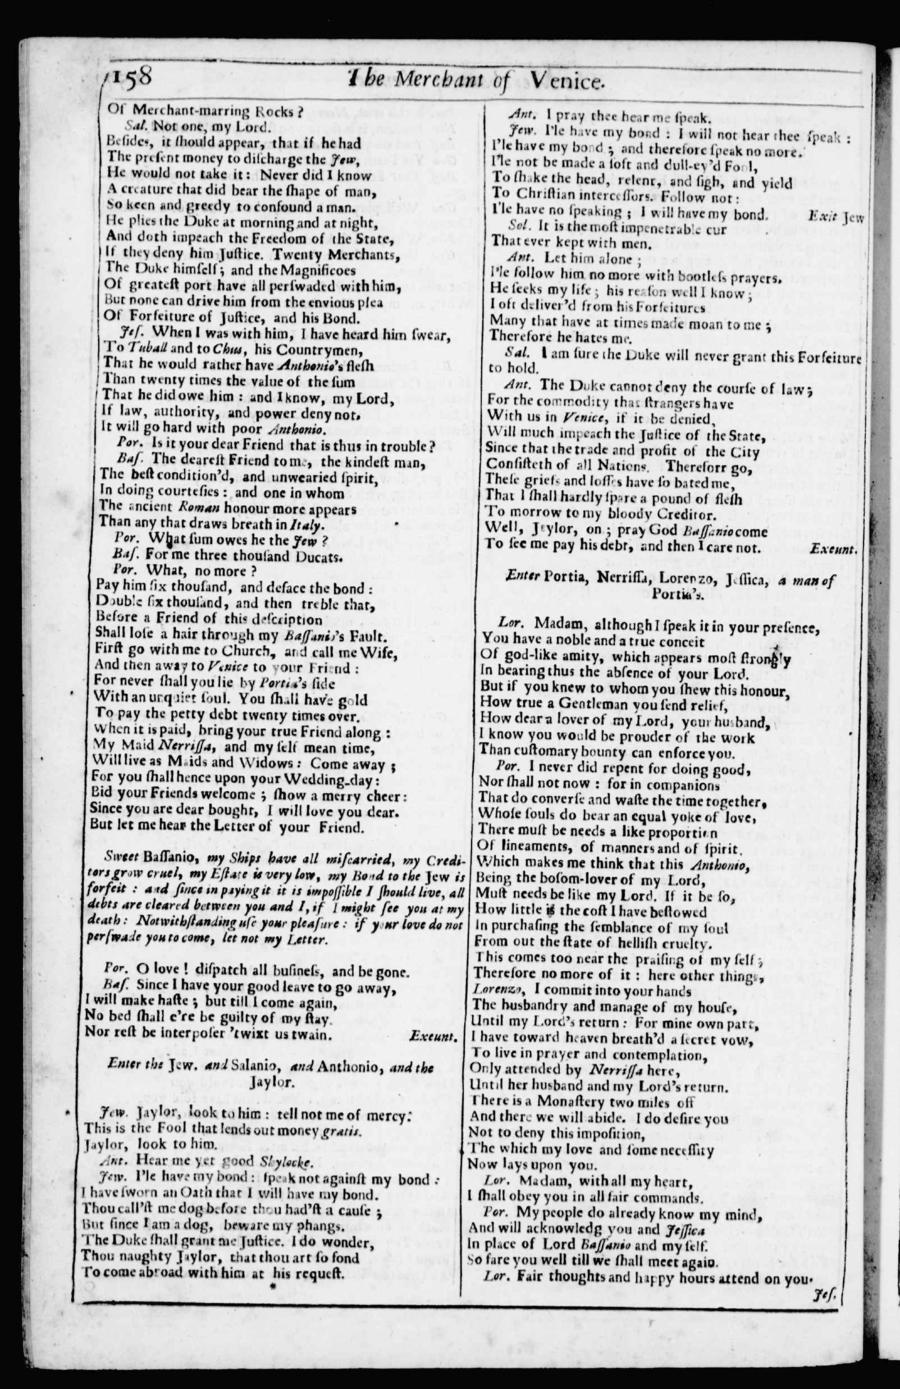 158
The Merchant of Venice.
Of Merchant-marring Rocks?
Sal. Not one, my Lord.
Beſides, it ſhould appear, that if he had
The preſent money to diſcharge the Jew,
He would not take it: Never did I know
A creature that did bear the ſhape of man,
So keen and greedy to confound a man.
He plies the Duke at morning and at night,
And doth impeach the Freedom of the State,
If they deny him Juſtice. Twenty Merchants,
The Duke himſelf; and the Magnificoes
Of greateſt port have all perſwaded with him,
But none can drive him from the envious plea
Of Forfeiture of Juſtice, and his Bond.
Jeſ. When I was with him, I have heard him ſwear,
To Tuball and to Chus, his Countrymen,
That he would rather have Anthonio's fleſh
Than twenty times the value of the ſum
That he did owe him: and I know, my Lord,
If law, authority, and power deny not,
It will go hard with poor Anthonio.
Por. Is it your dear Friend that is thus in trouble?
Baſ. The deareſt Friend to me, the kindeſt man,
The beſt condition'd, and unwearied ſpirit,
In doing courteſies: and one in whom
The ancient Roman honour more appears
Than any that draws breath in Italy.
Por. What ſum owes he the Jew?
Baſ. For me three thouſand Ducats.
Por. What, no more?
Pay him ſix thouſand, and deface the bond:
Double ſix thouſand, and then treble that,
Before a Friend of this deſcription
Shall loſe a hair through my Baſſanio's Fault.
Firſt go with me to Church, and call me Wife,
And then away to Venice to your Friend:
For never ſhall you lie by Portia's ſide
With an unquiet ſoul. You ſhall have gold
To pay the petty debt twenty times over.
When it is paid, bring your true Friend along:
My Maid Nerriſſa, and my ſelf mean time,
Will live as Maids and Widows: Come away;
For you ſhall hence upon your Wedding-day:
Bid your Friends welcome; ſhow a merry cheer:
Since you are dear bought, I will love you dear.
But let me hear the Letter of your Friend.
Sweet Baſſanio, my Ships have all miſcarried, my Credi-
tors grow cruel, my Eſtate is very low, my Bond to the Jew is
forfeit: and ſince in paying it it is impoſſible I ſhould live, all
debts are cleared between you and I, if I might ſee you at my
death: Notwithſtanding uſe your pleaſure: if your love do not
perſwade you to come, let not my Letter.
Por. O love! diſpatch all buſineſs, and be gone.
Baſ. Since I have your good leave to go away,
I will make haſte; but till I come again,
No bed ſhall e're be guilty of my ſtay.
Nor reſt be interpoſer 'twixt us twain. Exeunt.
Enter the Jew. and Salanio, and Anthonio, and the
Jaylor.
Jew. Jaylor, look to him: tell not me of mercy:
This is the Fool that lends out money gratis.
Jaylor, look to him.
Ant. Hear me yet good Shylocke.
Jew. I'le have my bond: ſpeak not againſt my bond:
I have ſworn an Oath that I will have my bond.
Thou call'ſt me dog before thou had'ſt a cauſe;
But ſince I am a dog, beware my phangs.
The Duke ſhall grant me Juſtice. I do wonder,
Thou naughty Jaylor, that thou art ſo fond
To come abroad with him at his requeſt.
Ant. I pray thee hear me ſpeak.
Jew. I'le have my bond: I will not hear thee ſpeak:
I'le have my bond; and therefore ſpeak no more.
I'le not be made a ſoft and dull-ey'd Fool,
To ſhake the head, relent, and ſigh, and yield
To Chriſtian interceſſors. Follow not:
I'le have no ſpeaking; I will have my bond. Exit Jew
Sol. It is the moſt impenetrable cur
That ever kept with men.
Ant. Let him alone;
I'le follow him no more with bootleſs prayers.
He ſeeks my life; his reaſon well I know;
I oft deliver'd from his Forfeitures
Many that have at times made moan to me;
Therefore he hates me.
Sal. I am ſure the Duke will never grant this Forfeiture
to hold.
Ant. The Duke cannot deny the courſe of law;
For the commodity that ſtrangers have
With us in Venice, if it be denied,
Will much impeach the Juſtice of the State,
Since that the trade and profit of the City
Conſiſteth of all Nations. Thereforr go,
Theſe griefs and loſſes have ſo bated me,
That I ſhall hardly ſpare a pound of fleſh
To morrow to my bloody Creditor.
Well, Jaylor, on; pray God Baſſanio come
To ſee me pay his debt, and then I care not. Exeunt.
Enter Portia, Nerriſſa, Lorenzo, Jeſſica, a man of
Portia's.
Lor. Madam, although I ſpeak it in your preſence,
You have a noble and a true conceit
Of god-like amity, which appears moſt ſtrongly
In bearing thus the abſence of your Lord.
But if you knew to whom you ſhew this honour,
How true a Gentleman you ſend relief,
How dear a lover of my Lord, your husband,
I know you would be prouder of the work
Than cuſtomary bounty can enforce you.
Por. I never did repent for doing good,
Nor ſhall not now: for in companions
That do converſe and waſte the time together,
Whoſe ſouls do bear an equal yoke of love,
There muſt be needs a like proportion
Of lineaments, of manners and of ſpirit.
Which makes me think that this Anthonio,
Being the boſom-lover of my Lord,
Muſt needs be like my Lord. If it be ſo,
How little is the coſt I have beſtowed
In purchaſing the ſemblance of my ſoul
From out the ſtate of helliſh cruelty.
This comes too near the praiſing of my ſelf;
Therefore no more of it: here other things,
Lorenzo, I commit into your hands
The husbandry and manage of my houſe,
Until my Lord's return: For mine own part,
I have toward heaven breath'd a ſecret vow,
To live in prayer and contemplation,
Only attended by Nerriſſa here,
Until her husband and my Lord's return.
There is a Monaſtery two miles off
And there we will abide. I do deſire you
Not to deny this impoſition,
The which my love and ſome neceſſity
Now lays upon you.
Lor. Madam, with all my heart,
I ſhall obey you in all fair commands.
Por. My people do already know my mind,
And will acknowledg you and Jeſſica
In place of Lord Baſſanio and my ſelf.
So fare you well till we ſhall meet again.
Lor. Fair thoughts and happy hours attend on you.
Jeſ.